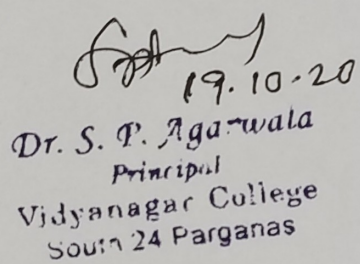 19.10.20
Dr. S. P. Agarwala
Principal
Vidyanagar College
South 24 Parganas